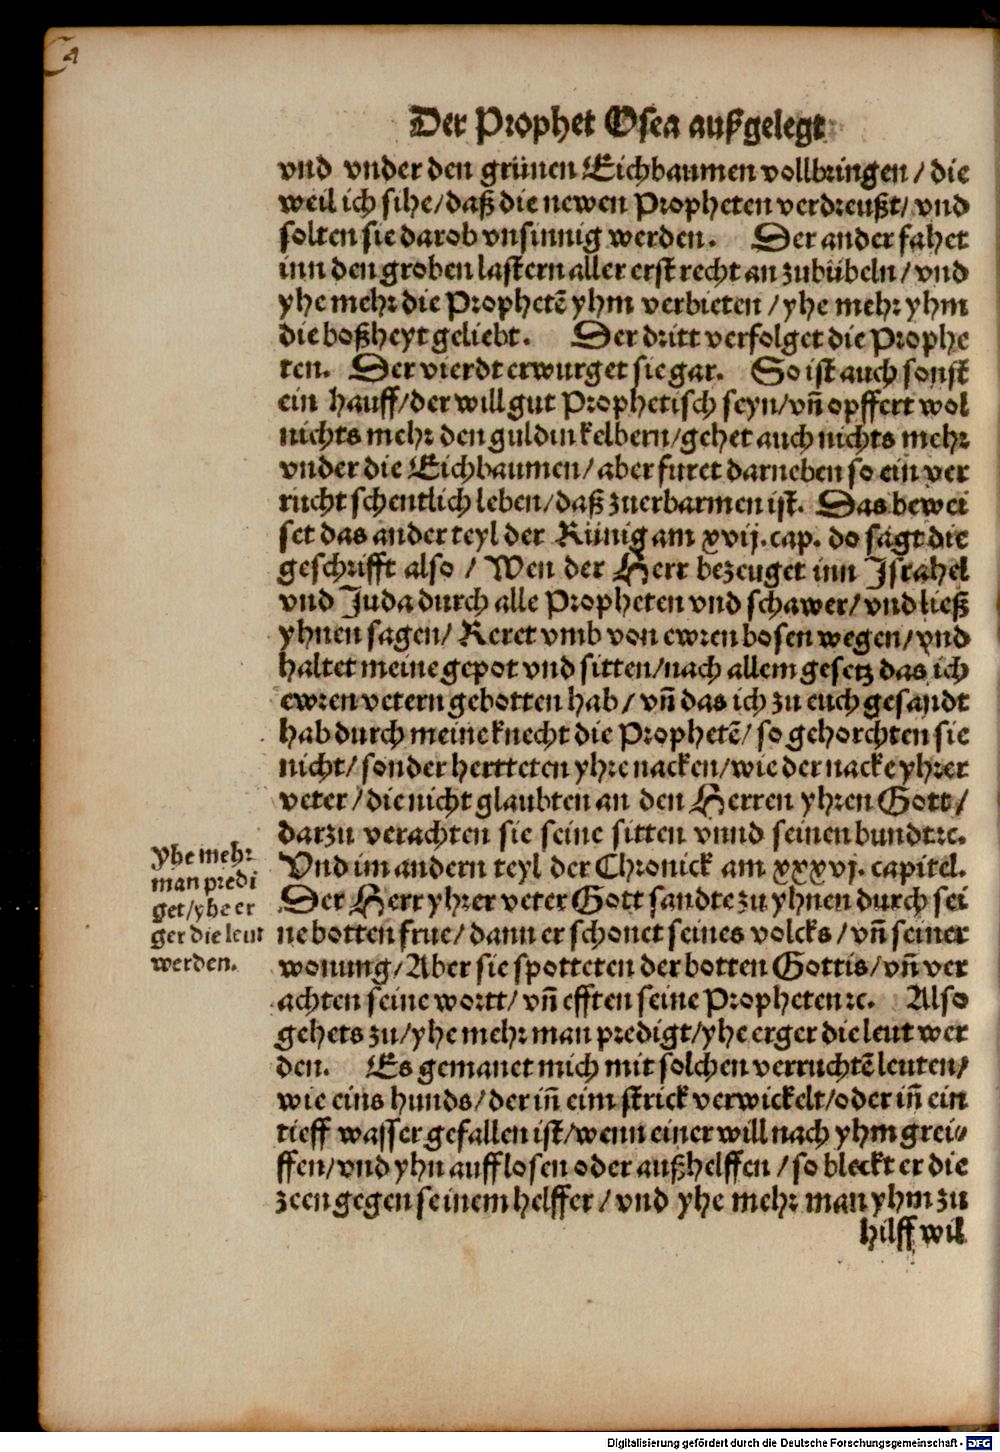 Der Prophet Osea außgelegt
vnd vnder den grünen Eichbaumen vollbringen / die
weil ich sihe / daß die newen Propheten verdreußt / vnd
solten sie darob vnsinnig werden. Der ander fahet
inn den groben lastern aller erst recht an zubübeln / vnd
yhe mehr die Prophetē yhm verbieten / yhe mehr yhm
die boßheyt geliebt. Der dritt verfolget die Prophe
ten. Der vierdt erwurget sie gar. So ist auch sonst
ein hauff / der will gut Prophetisch seyn / vñ opffert wol
nichts mehr den guldin kelbern / gehet auch nichts mehr
vnder die Eichbaumen / aber furet darneben so ein ver
rucht schentlich leben / daß zuerbarmen ist. Das bewei
set das ander teyl der Künig am xvij. cap. do sagt die
geschrifft also / Wen der Herr bezeuget inn Israhel
vnd Juda durch alle Propheten vnd schawer / vnd ließ
yhnen sagen / Keret vmb von ewren bosen wegen / vnd
haltet meine gepot vnd sitten / nach allem gesetz das ich
ewren vetern gebotten hab / vñ das ich zu euch gesandt
hab durch meine knecht die Prophetē / so gehorchten sie
nicht / sonder hertteten yhre nacken / wie der nacke yhrer
veter / die nicht glaubten an den Herren yhren Gott /
darzu verachten sie seine sitten vnnd seinen bundt ꝛc.
Vnd im andern teyl der Chronick am xxxvj. capitel.
Der Herr yhrer veter Gott sandte zu yhnen durch sei
ne botten frue / dann er schonet seines volcks / vñ seiner
wonung / Aber sie spotteten der botten Gottis / vñ ver
achten seine wortt / vñ efften seine Propheten ꝛc. Also
gehets zu / yhe mehr man predigt / yhe erger die leut wer
den. Es gemanet mich mit solchen verruchtē leuten /
wie eins hunds / der iñ eim strick verwickelt / oder iñ ein
tieff wasser gefallen ist / wenn einer will nach yhm grei⸗
ffen / vnd yhn aufflosen oder außhelffen / so bleckt er die
zeen gegen seinem helffer / vnd yhe mehr man yhm zu
hilff wil
Yhe mehr
man predi
get / yhe er
ger die leut
werden.
Digitalisierung gefördert durch die Deutsche Forschungsgemeinschaft - DFG